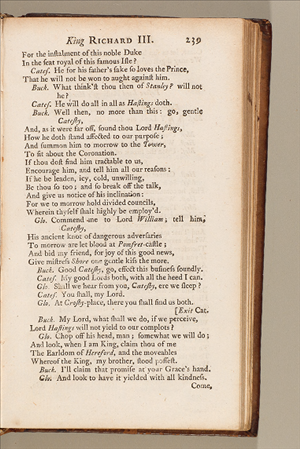 King RICHARD III. 239
For the instalment of this noble Duke
In the seat royal of this famous Isle?
Cates. He for his father's sake so loves the Prince,
That he will not be won to aught against him.
Buck. What think'st thou then of Stanley? will not
he?
Cates. He will do all in all as Hastings doth.
Buck. Well then, no more than this: go, gentle
Catesby,
And, as it were far off, sound thou Lord Hastings,
How he doth stand affected to our purpose;
And summon him to morrow to the Tower,
To sit about the Coronation.
If thou dost find him tractable to us,
Encourage him, and tell him all our reasons:
If he be leaden, icy, cold, unwilling,
Be thou so too; and so break off the talk,
And give us notice of his inclination:
For we to morrow hold divided councils,
Wherein thyself shalt highly be employ'd.
Glo. Commend me to Lord William; tell him,
Catesby,
His ancient knot of dangerous adversaries
To morrow are let blood at Pomfret-castle;
And bid my friend, for joy of this good news,
Give mistress Shore one gentle kiss the more.
Buck. Good Catesby, go, effect this business soundly.
Cates. My good Lords both, with all the heed I can.
Glo. Shall we hear from you, Catesby, ere we sleep?
Cates. You shall, my Lord.
Glo. At Crosby-place, there you shall find us both.
[Exit Cat.
Buck. My Lord, what shall we do, if we perceive,
Lord Hastings will not yield to our complots?
Glo. Chop off his head, man; somewhat we will do;
And look, when I am King, claim thou of me
The Earldom of Hereford, and the moveables
Whereof the King, my brother, stood possest.
Buck. I'll claim that promise at your Grace's hand.
Glo. And look to have it yielded with all kindness.
Come,